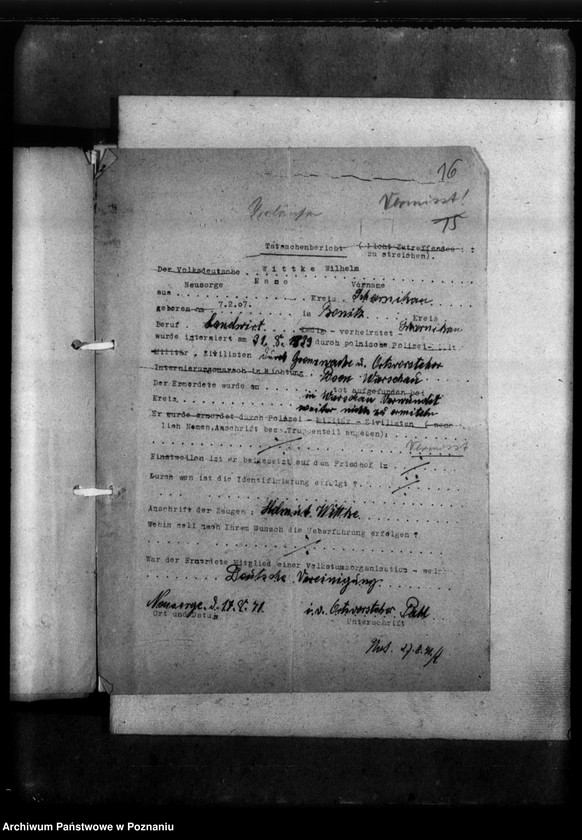 16
Vermisst!
15
Tatsachenbericht (Nicht Zutreffendes
zu streichen).
Der Volksdeutsche Wittke Wilhelm
Neusorge Name Vorname
aus Kreis Scharnikau
geboren am 7.2.07. in Kreis
Beruf Landwirt ledig - verheiratet - Scharnikau
wurde interniert am 31.8.1939 durch polnische Polizei-
Militär, Zivilisten durch Grenzwache u. Ortsvorsteher
Internierungsmarsch in Richtung Posen Warschau
Der Ermordete wurde am tot aufgefunden bei
Kreis in Warschau Verwundet
weiter nicht zu ermitteln
Er wurde ermordet durch Polizei - Militär - Zivilisten
lich Namen, Anschrift bezw. Truppenteil angeben);
Vermisst
Einstweilen ist er beigesetzt auf dem Friedhof in
Durch wen ist die Identifizierung erfolgt ?
Anschrift der Zeugen: Helmut Wittke
Wohin soll nach Ihrem Wunsch die Ueberführung erfolgen ?
War der Ermordete Mitglied einer Volkstumsorganisation -
Deutsche Vereinigung.
Neusorge. d. 17.8.41. i.v. Ortsvorsteher
Ort und Datum Unterschrift
Archiwum Państwowe w Poznaniu